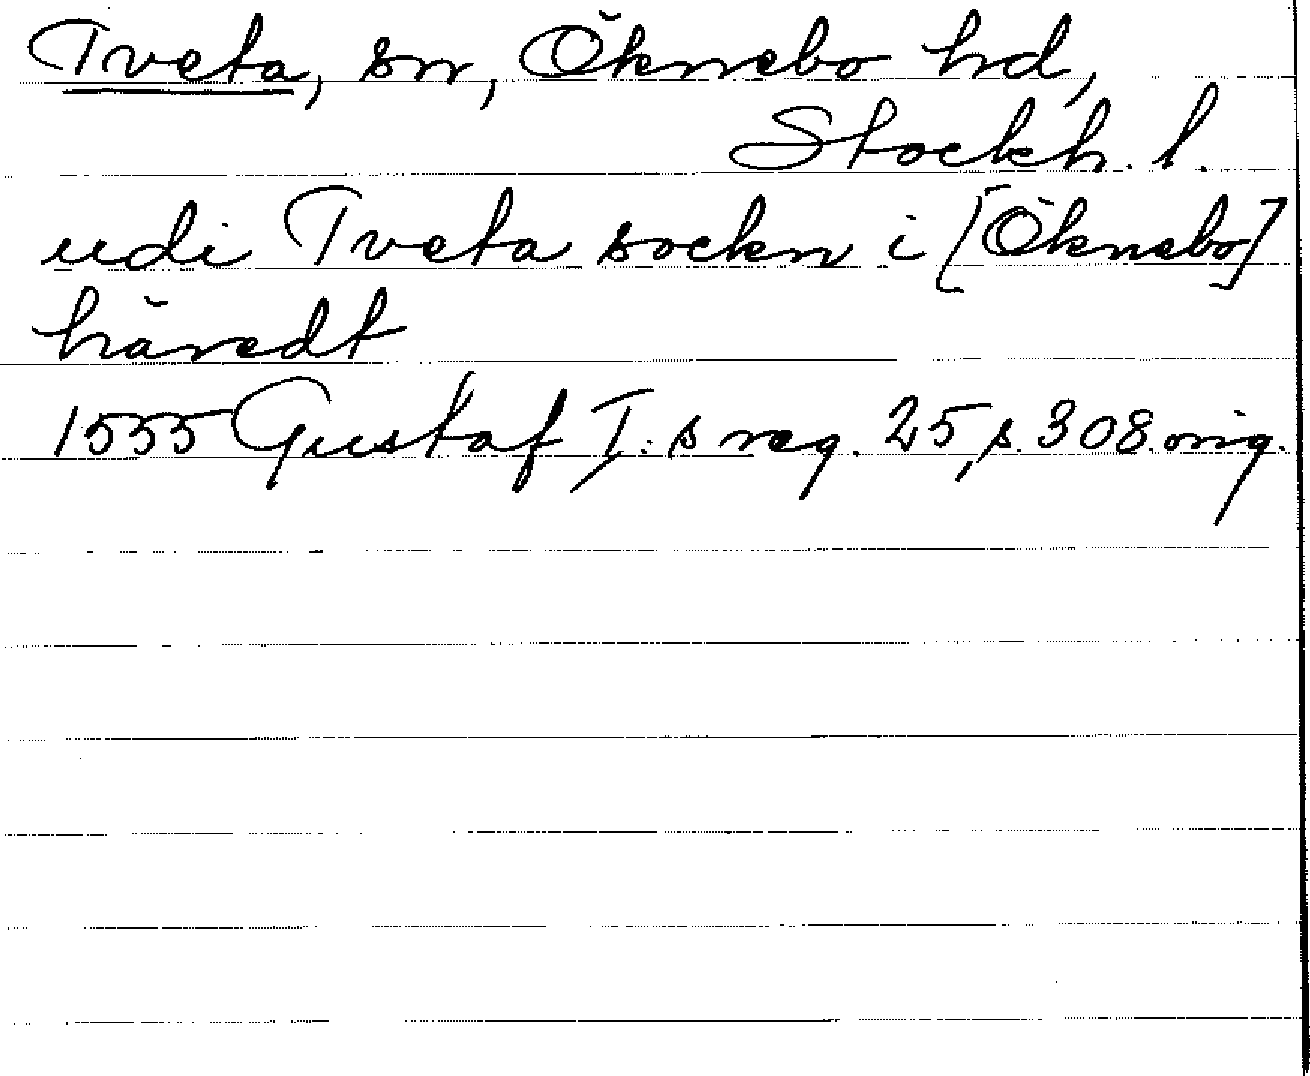 Tveta, sn, Öknebo hd,
Stockh. l.
udi Tveta sockn i [Öknebo]
häredt
1555 Gustaf I:s reg. 25, s. 308. orig.